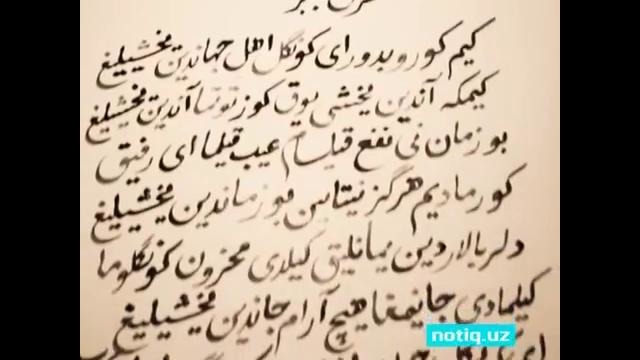 کیم کوروبدور ای کونگل اهل جهاندین یخشیلیغ
کیمکه آندین یخشی یوق کوز توتما آندین یخشیلیغ
بو زمان نی نفع قیلسام عیب قیلما ای رفیق
کورمادیم هرگز نیتایین بو زماندین یخشیلیغ
دلربالاردین یمانلیق کیلدی محزون کونگلوما
کیلمادی جانیمغا هیچ آرام جاندین یخشیلیغ
ای
notiq.uz